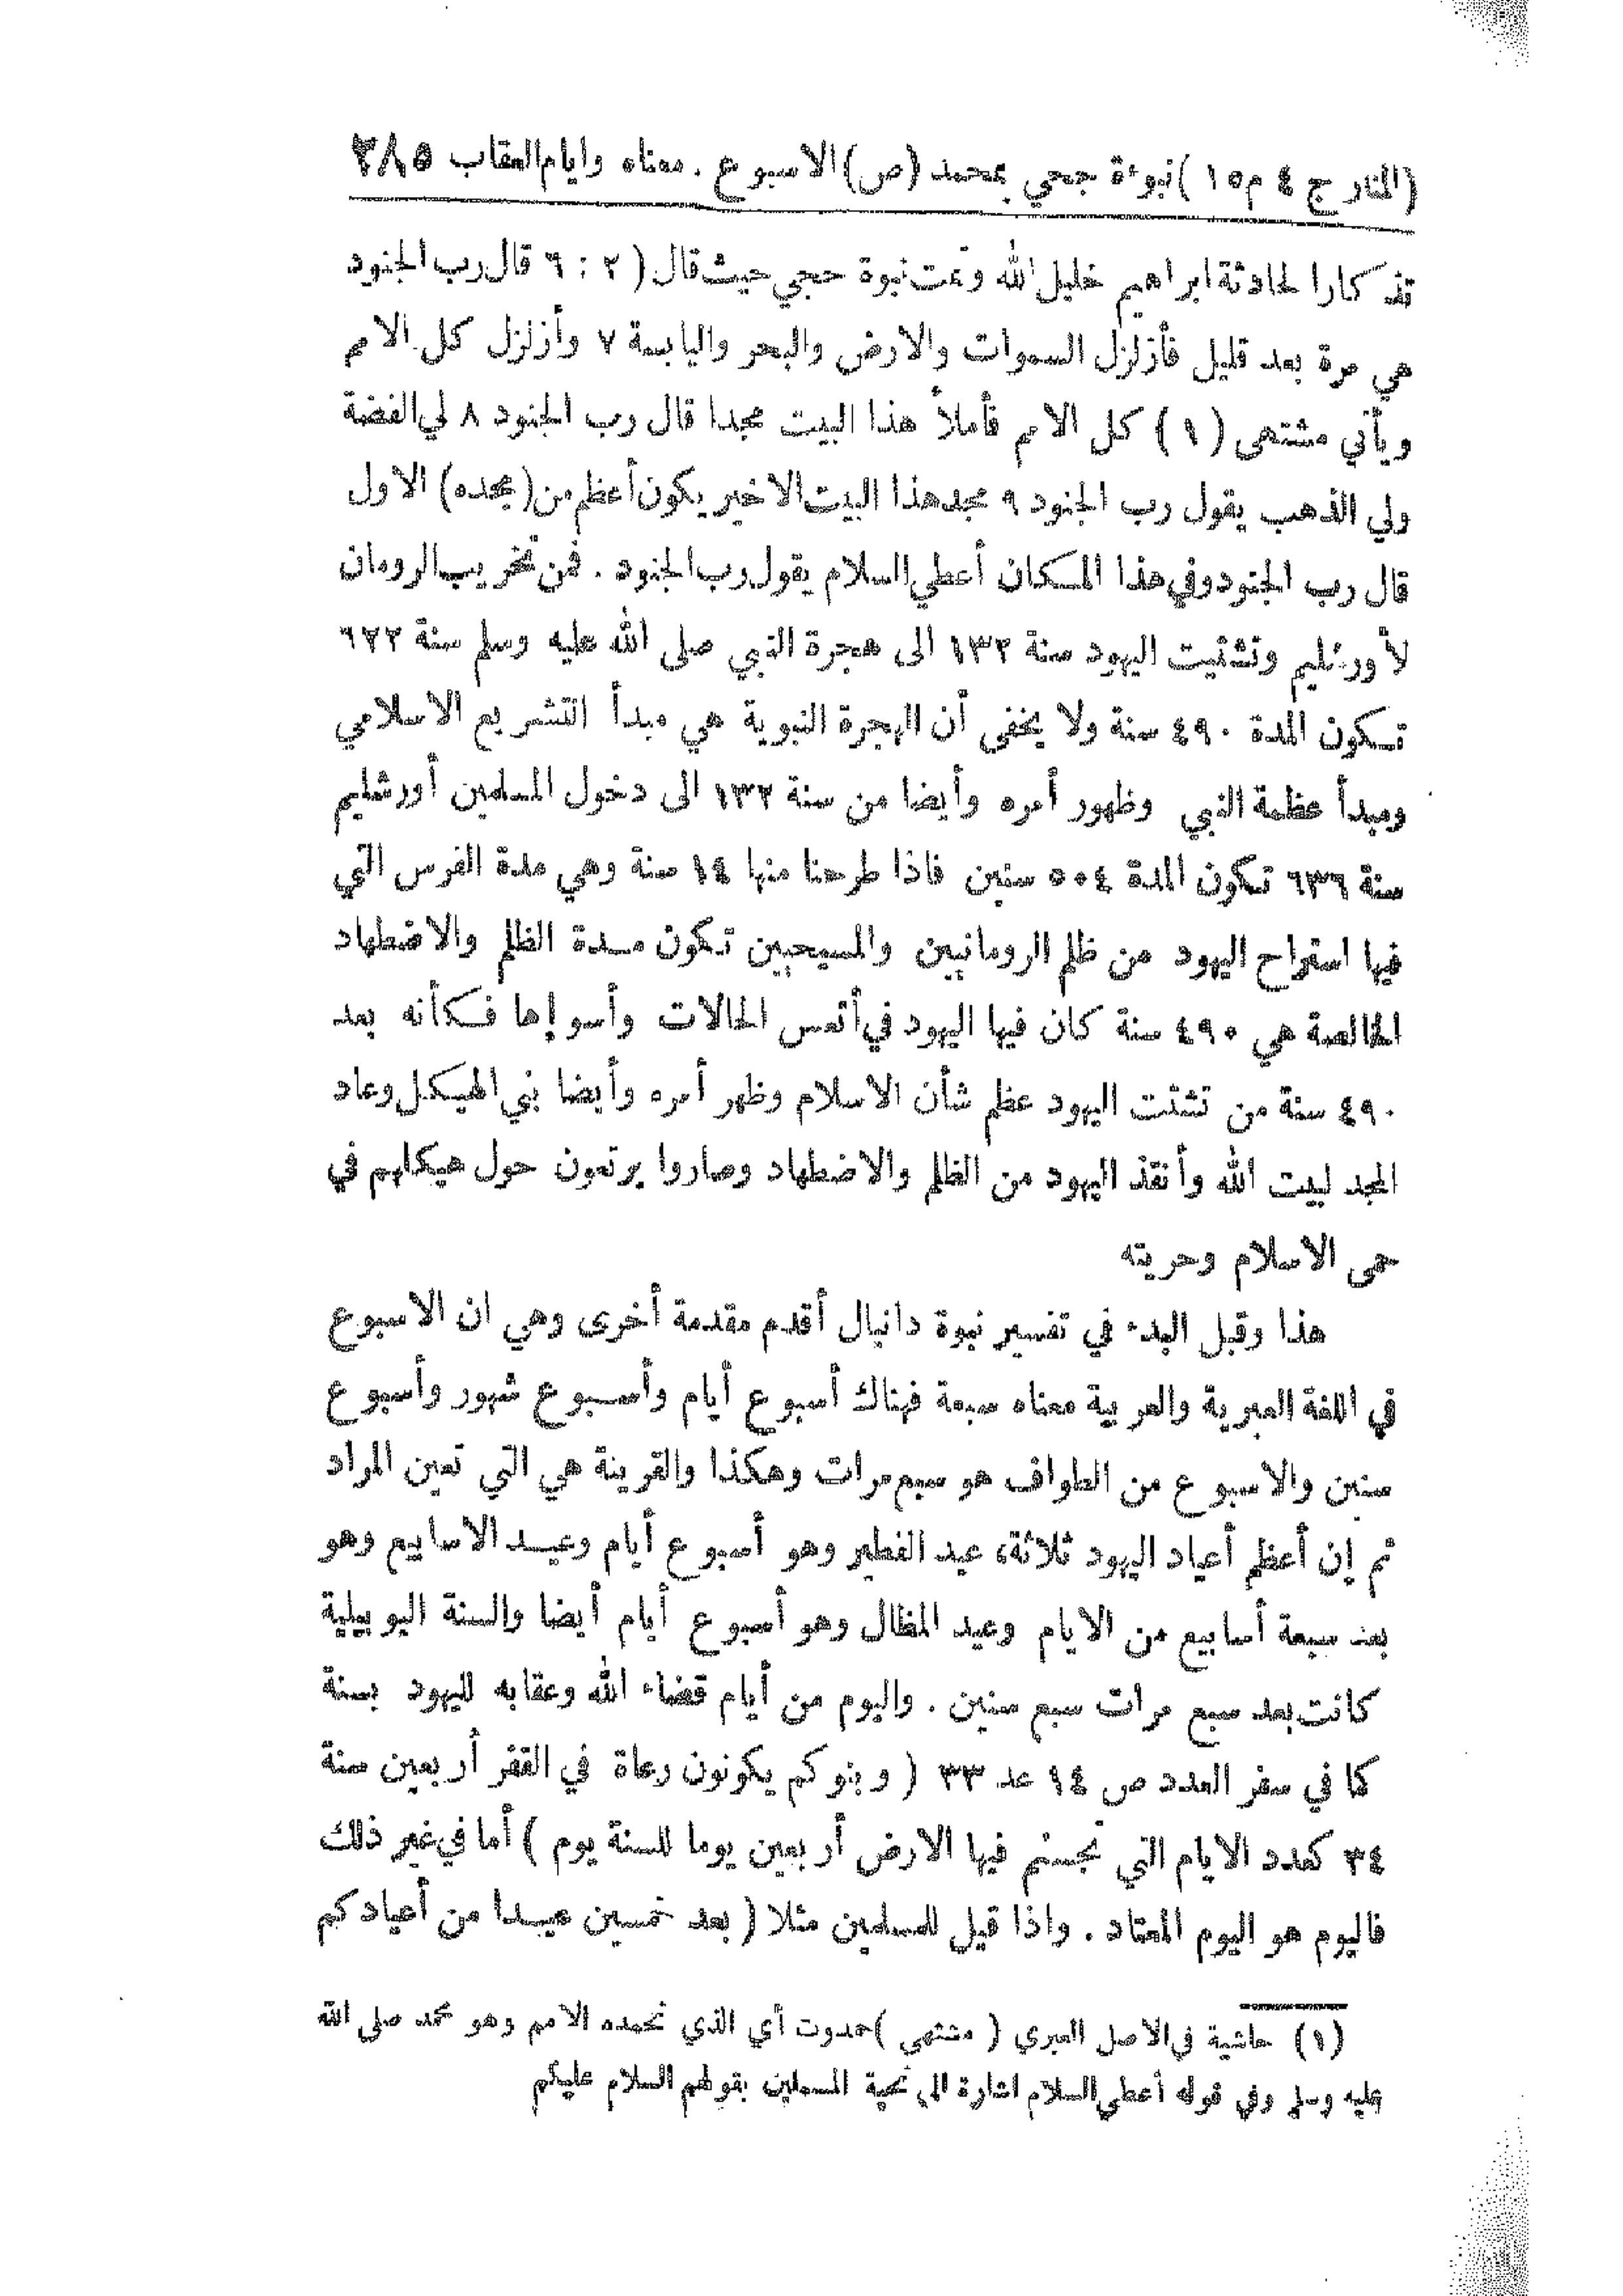 (المنار ج ٤ م ١٥) نبوءة حجي بمحمد (ص) الاسبوع . معناه وايام العقاب ٣٨٥
تذكارا لحادثة ابراهيم خليل الله وتمت نبوة حجي حيث قال (٢ : ٦ قال رب الجنود
هي مرة بعد قليل فأزلزل السموات والارض والبحر واليابسة ٧ وأزلزل كل الامم
ويأتي مشتهى (١) كل الامم فأملأ هذا البيت مجدا قال رب الجنود ٨ لي الفضة
ولي الذهب يقول رب الجنود ٩ مجد هذا البيت الاخير يكون أعظم من (مجده) الاول
قال رب الجنود وفي هذا المكان أعطي السلام يقول رب الجنود . فمن تخريب الرومان
لأورشليم وتشتيت اليهود سنة ١٣٢ الى هجرة النبي صلى الله عليه وسلم سنة ٦٢٢
تكون المدة ٤٩٠ سنة ولا يخفى أن الهجرة النبوية هي مبدأ التشريع الاسلامي
ومبدأ عظمة النبي وظهور أمره وأيضا من سنة ١٣٢ الى دخول المسلمين أورشليم
سنة ٦٣٦ تكون المدة ٥٠٤ سنين فاذا طرحنا منها ١٤ سنة وهي مدة الفرس التي
فيها استراح اليهود من ظلم الرومانيين والمسيحيين تكون مدة الظلم والاضطهاد
الخالصة هي ٤٩٠ سنة كان فيها اليهود في أتعس الحالات وأسوإها فكأنه بعد
٤٩٠ سنة من تشتت اليهود عظم شأن الاسلام وظهر أمره وأيضا بني الهيكل وعاد
المجد لبيت الله وأنقذ اليهود من الظلم والاضطهاد وصاروا يرتعون حول هيكلهم في
حمى الاسلام وحريته
هذا وقبل البدء في تفسير نبوة دانيال أقدم مقدمة أخرى وهي ان الاسبوع
في اللغة العبرية والعربية معناه سبعة فهناك أسبوع أيام وأسبوع شهور وأسبوع
سنين والاسبوع من الطواف هو سبع مرات وهكذا والقرينة هي التي تعين المراد
ثم إن أعظم أعياد اليهود ثلاثة، عيد الفطير وهو أسبوع أيام وعيد الاسابيع وهو
بعد سبعة أسابيع من الايام وعيد المظال وهو أسبوع أيام أيضا والسنة اليوبيلية
كانت بعد سبع مرات سبع سنين . واليوم من أيام قضاء الله وعقابه لليهود بسنة
كما في سفر العدد ص ١٤ عد ٣٣ (وبنوكم يكونون رعاة في القفر أربعين سنة
٣٤ كعدد الايام التي تجسستم فيها الارض أربعين يوما للسنة يوم) أما في غير ذلك
فاليوم هو اليوم المعتاد . واذا قيل للمسلمين مثلا (بعد خمسين عيدا من أعيادكم
(١) حاشية في الاصل العبري (مشتهى) حمدوت أي الذي تحمده الامم وهو محمد صلى الله
عليه وسلم وفي قوله أعطي السلام اشارة الى تحية المسلمين بقولهم السلام عليكم